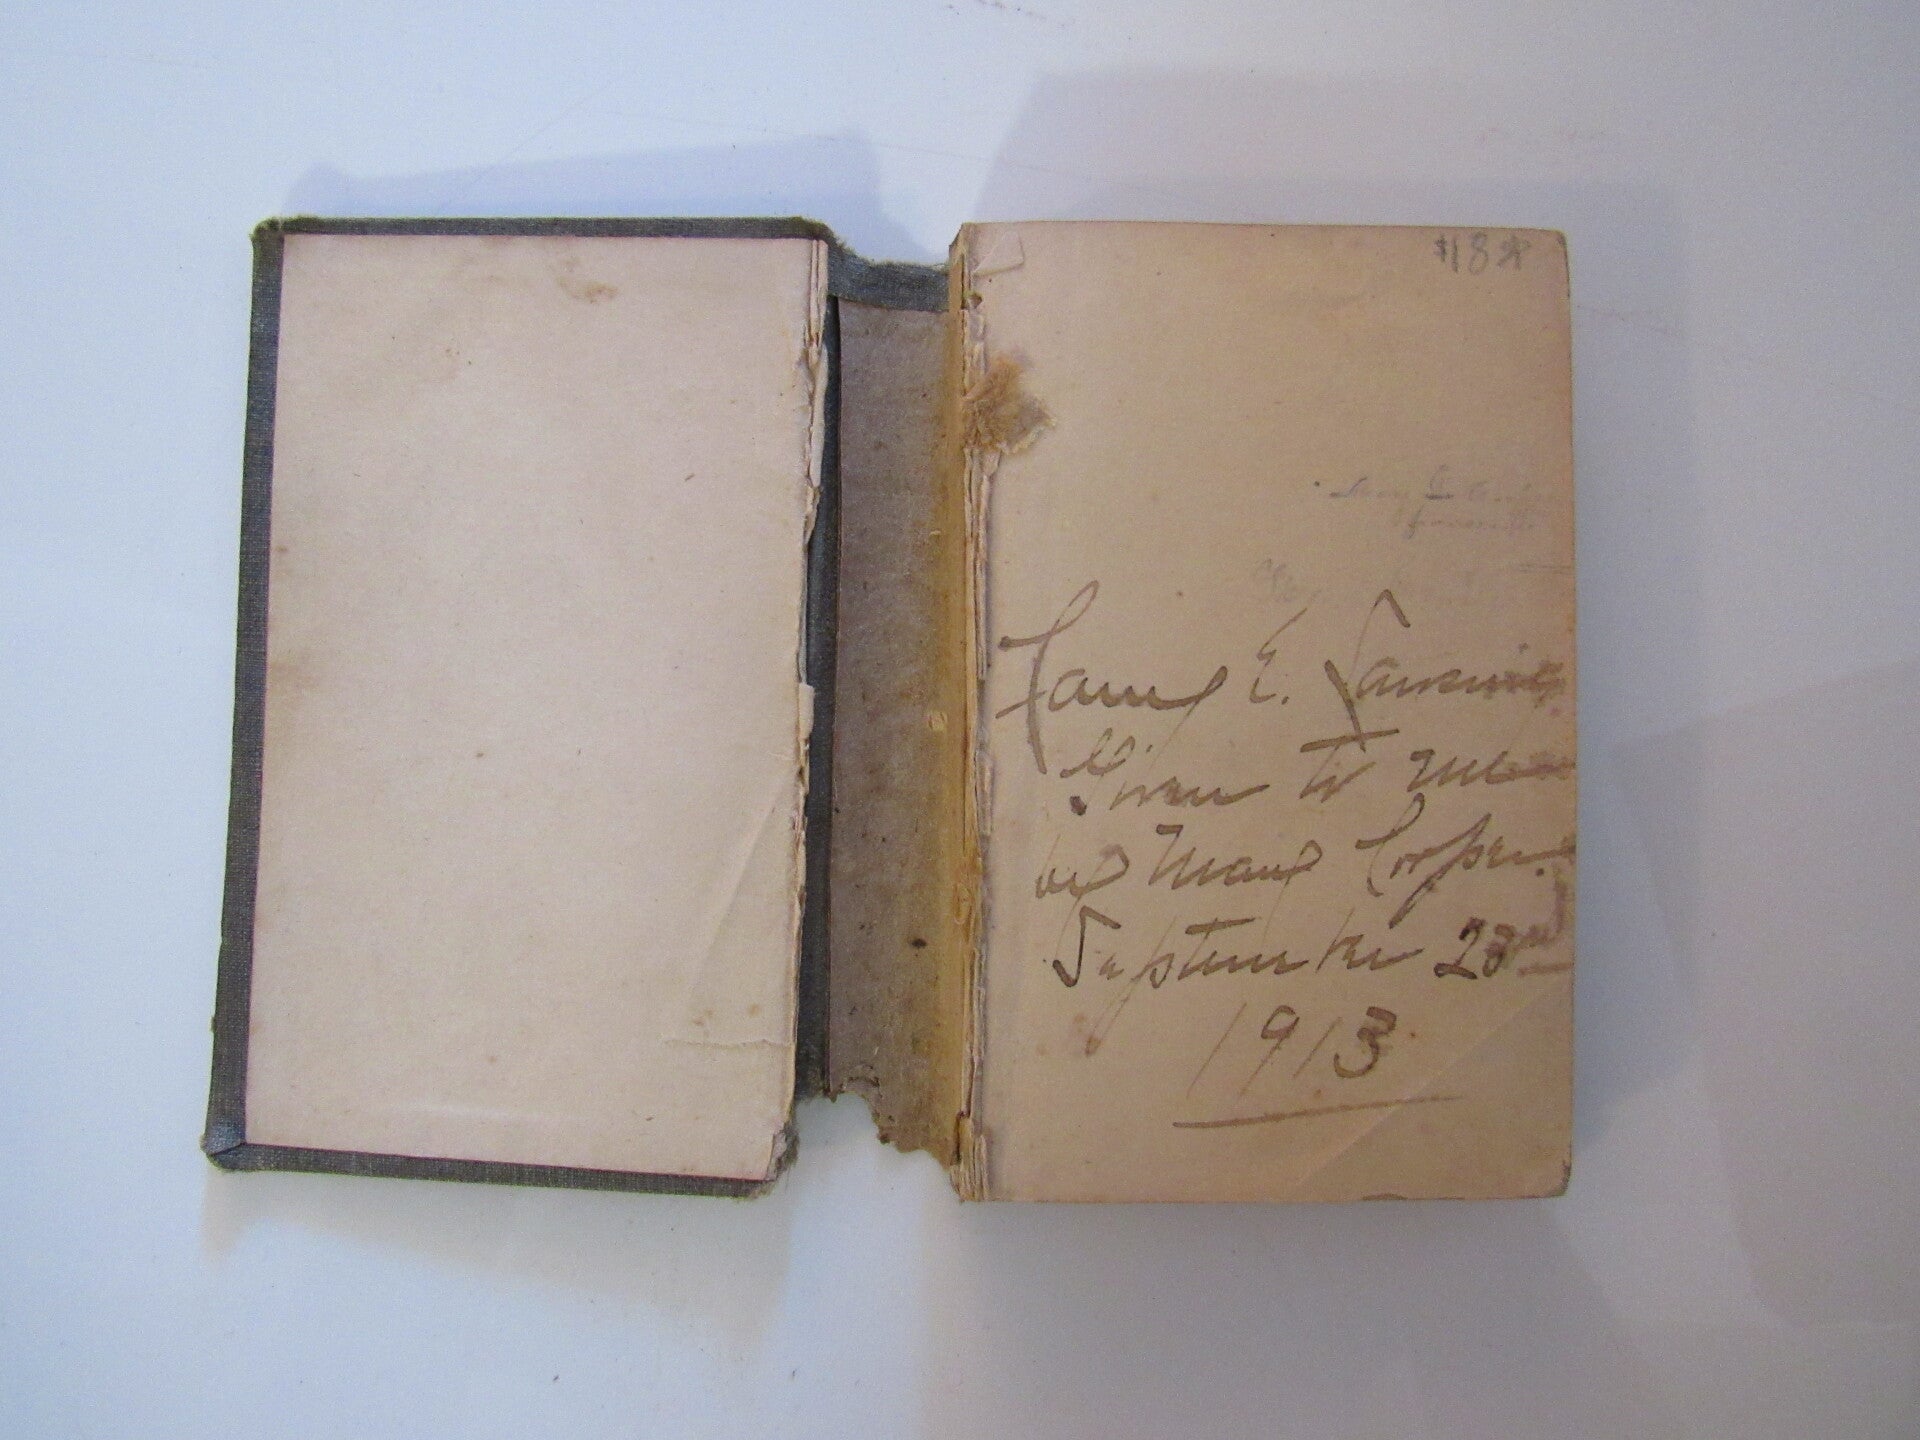 $18
Fanny E. Lansing
Given to me
by Mary Cooper.
September 23rd
1913